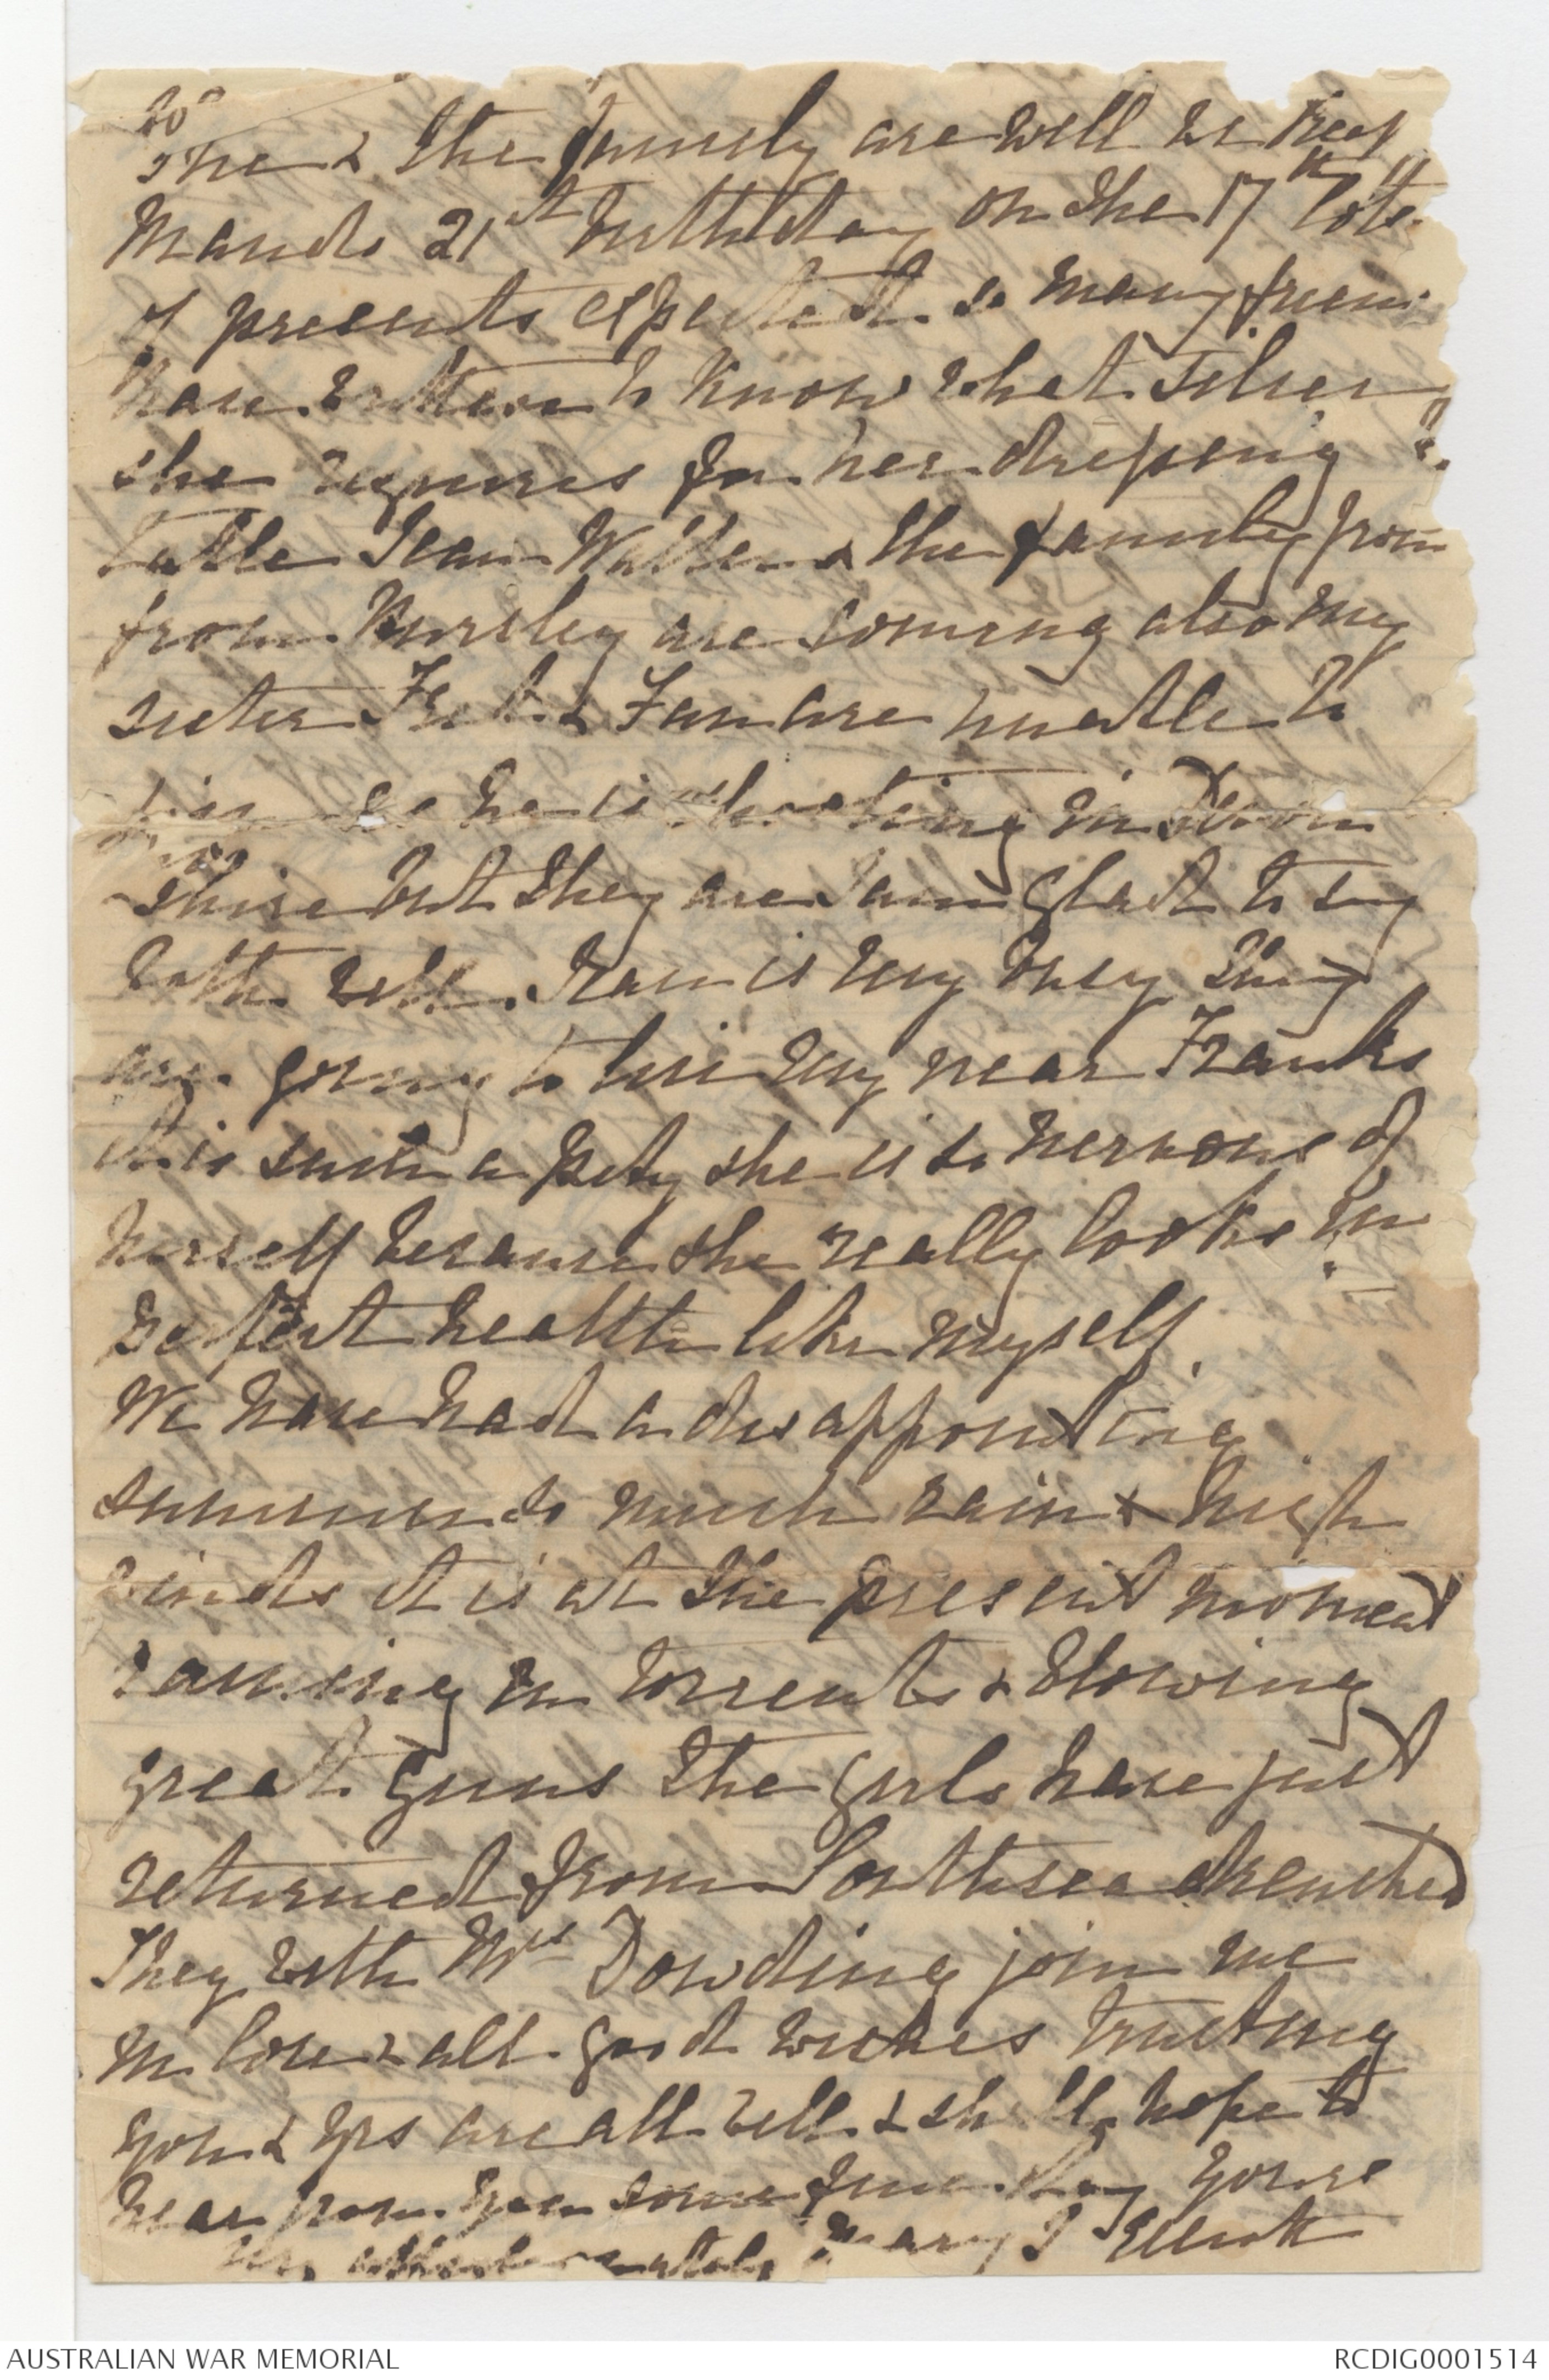 she & the family are well we keep
Mauds 21st birthday on the 17th lots
of presents expected so many
have written to know what silver
she requires for her dressing
table Jean Walter & the family from
from Hursley are coming also my
sister & Fan are unable to
join as he is shooting in Devon
shire but they are I am glad to say
both well. is very busy they
are going to live very near Franks
it is such a pity she is so nervous of
herself because she really looks in
perfect health like myself.
We have had a disappointing
summer so much rain & high
winds it is at the present moment
raining in torrents & blowing
great guns the girls have just
returned from Southsea drenched
They with Mrs Dowding join me
in love & all good wishes trusting
you & yrs are all well & shall hope to
hear from you some fine day yours
very affectionately Mary J Elliott
AUSTRALIAN WAR MEMORIAL
RCDIG0001514